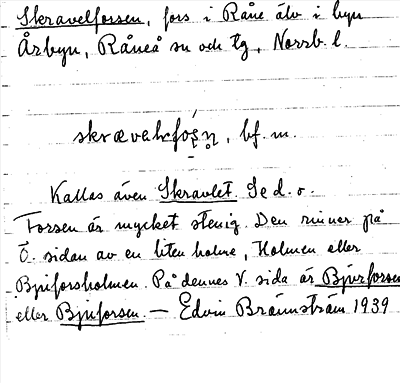 Skravelforsen, fors i Råne älv i byn
Årbyn, Råneå sn och tg, Norrb. l.
skrævəlfoṣn̥, bf. m.
Kallas även Skravlet. Se d. o.
Forsen är mycket stenig. Den rinner på
Ö. sidan av en liten holme, Holmen eller
Bjuforsholmen. På dennes V. sida är Bjurforsen
eller Bjuforsen. — Edvin Brännström 1939